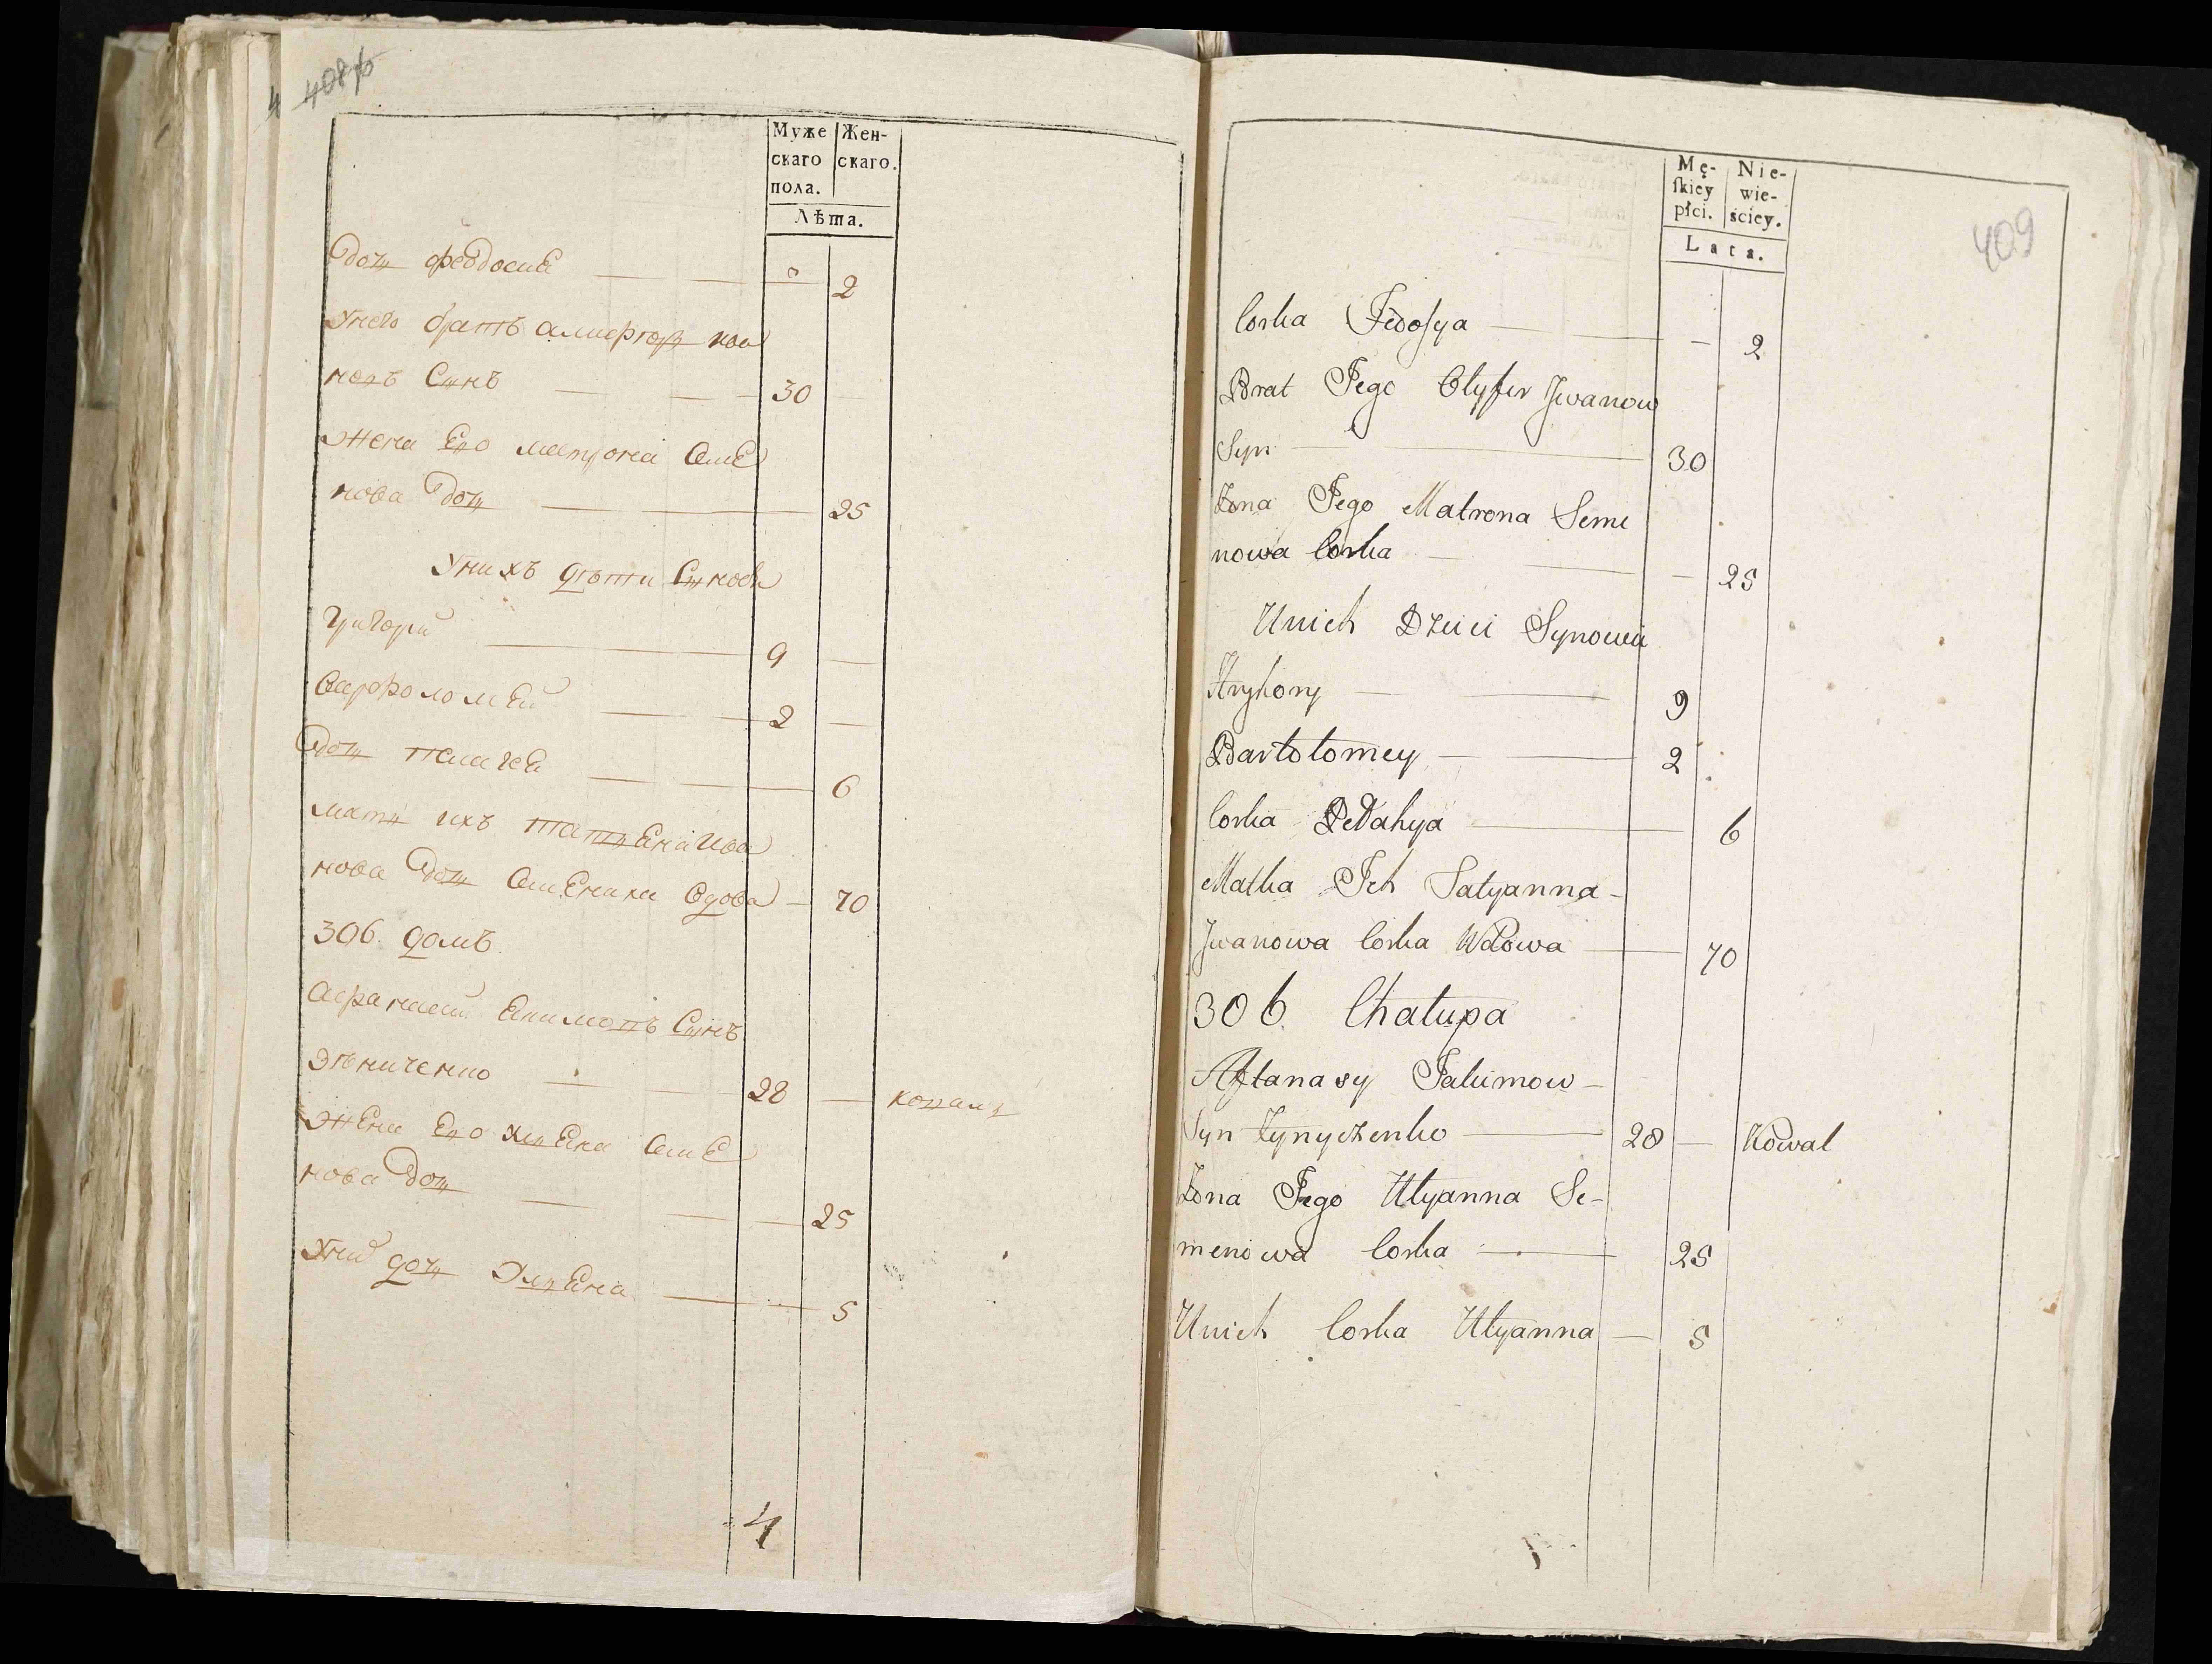 408об
Муже Жен-
скаго скаго.
пола.
Лѣта.
дочь феодосиѣ — 2
Унего братъ алиферъ Ива
новъ Сынъ — 30
Жена Его матрона Семе
нова дочь — 25
Унихъ дѣти Сыновя
Григорий — 9 —
Варфоломей — 2 —
дочь Палагея — 6
мать ихъ татьена Ива
нова дочь вдова — 70
306. домъ.
Афанасий Екимовъ Сынъ
Зѣниченко — 28 — коваль
Жена Его Семе
нова дочь — 25
дочь — 5
4
409
Mę- Nie-
skiey wie-
płci. ściey.
Lata.
Corka Fedosya — — 2
Brat Jego Olyfer Jwanow
Syn — 30
Żona Jego Matrona Seme
nowa Corka — — 25
Unich Dzieci Synowie
Hryhory — 9
Bartołomey — 2
Corka Pełahya — 6
Matka Ich Tatyanna —
Jwanowa Corka Wdowa — 70
306. Chałupa
Aftanasy Jakimow —
Syn Zynyczenko — 28 — Kowal
Żona Jego Ulyanna Se-
menowa Corka — 25
Unich Corka Ulyanna — 5